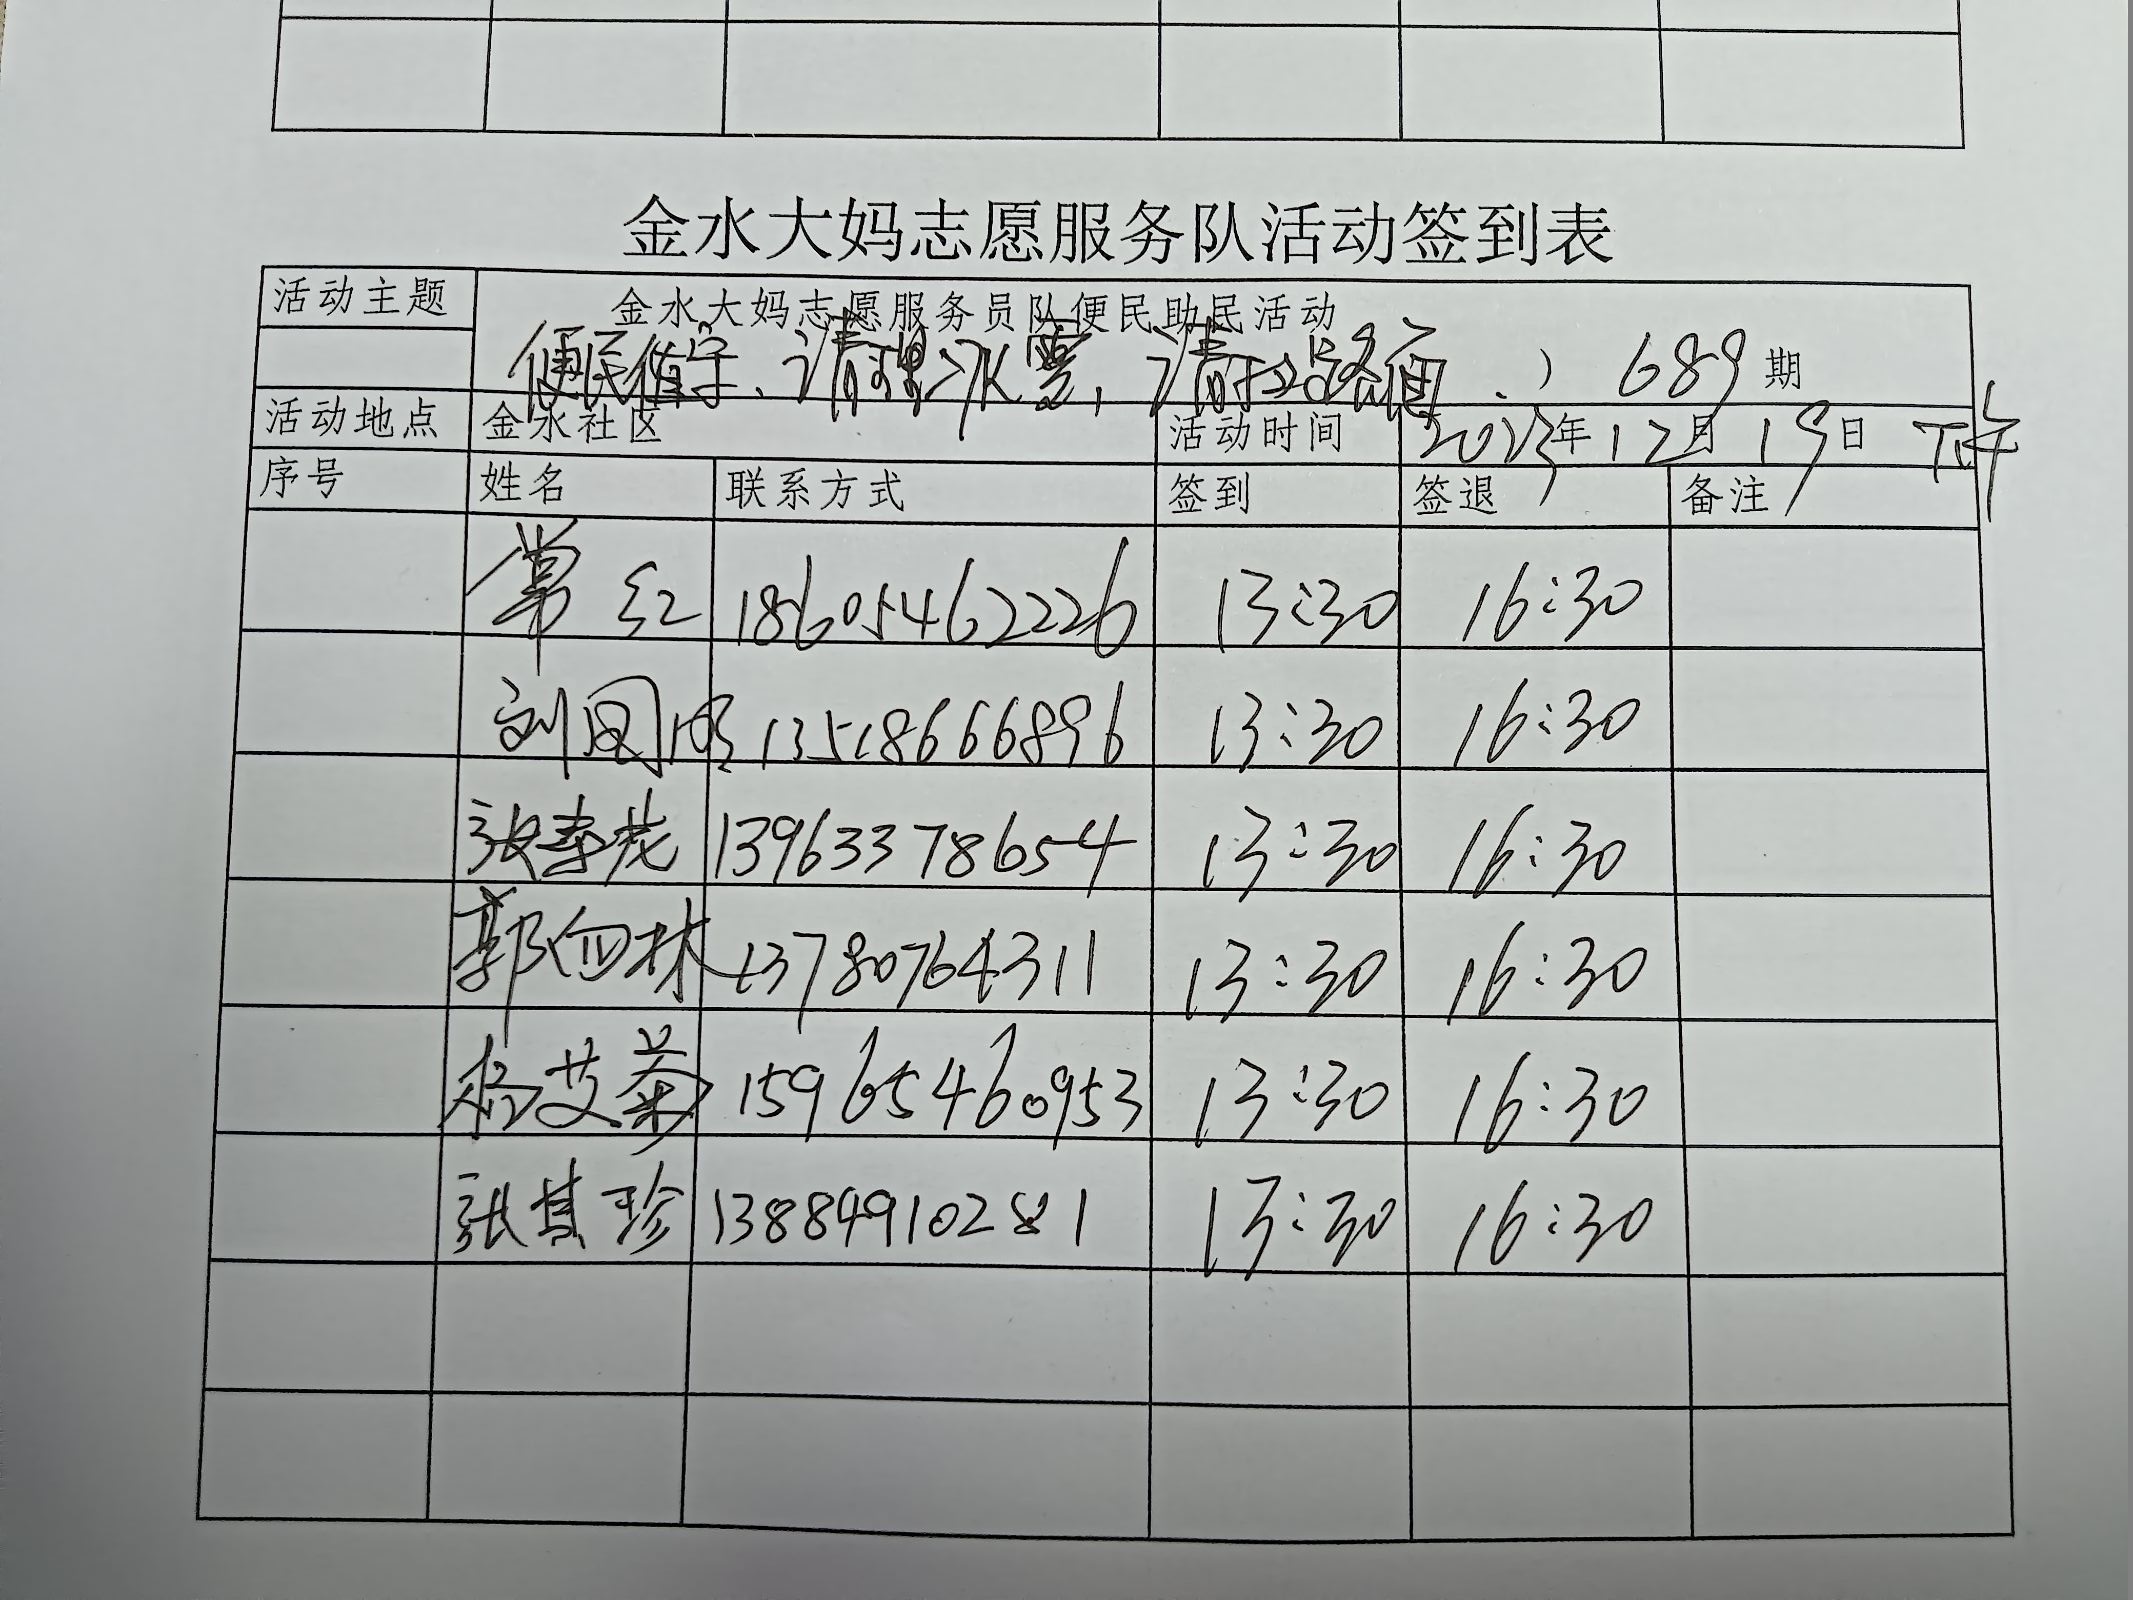 金水大妈志愿服务队活动签到表
活动主题 金水大妈志愿服务员队便民助民活动
便民值守、清理冰雪,清扫路面.) 689期
活动地点 金水社区 活动时间 2023年12月19日 下午
序号 姓名 联系方式 签到 签退 备注
常红 18605462226 13:30 16:30
刘国明 13518666896 13:30 16:30
张春花 13963378654 13:30 16:30
郭向林 13780764311 13:30 16:30
杨艾菊 15965460953 13:30 16:30
张其珍 13884910281 13:30 16:30